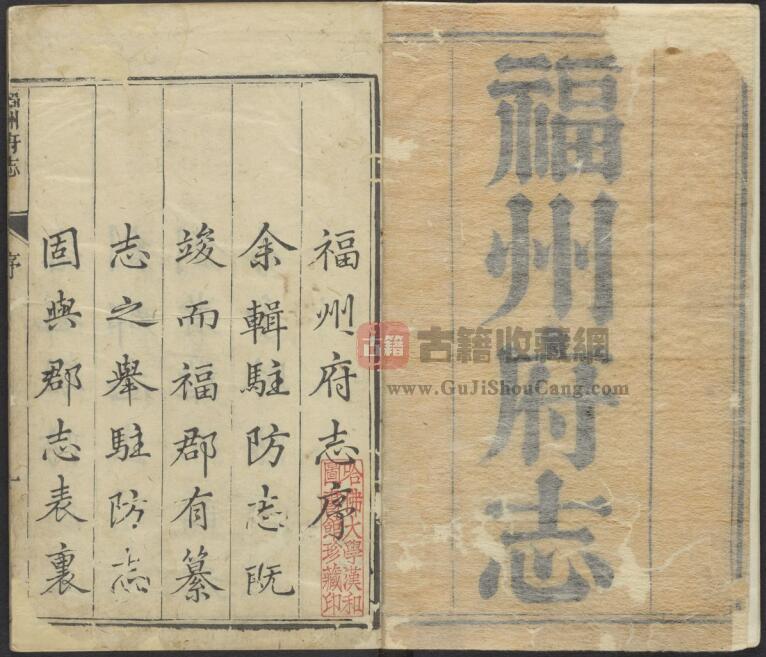 福州府志
福州府志序
余輯駐防志既
竣而福郡有纂
志之舉駐防志
固與郡志表裏
福州府志
序
一
哈佛大學漢和
圖書館珍藏印
古籍
古籍收藏網
www.GuJiShouCang.com